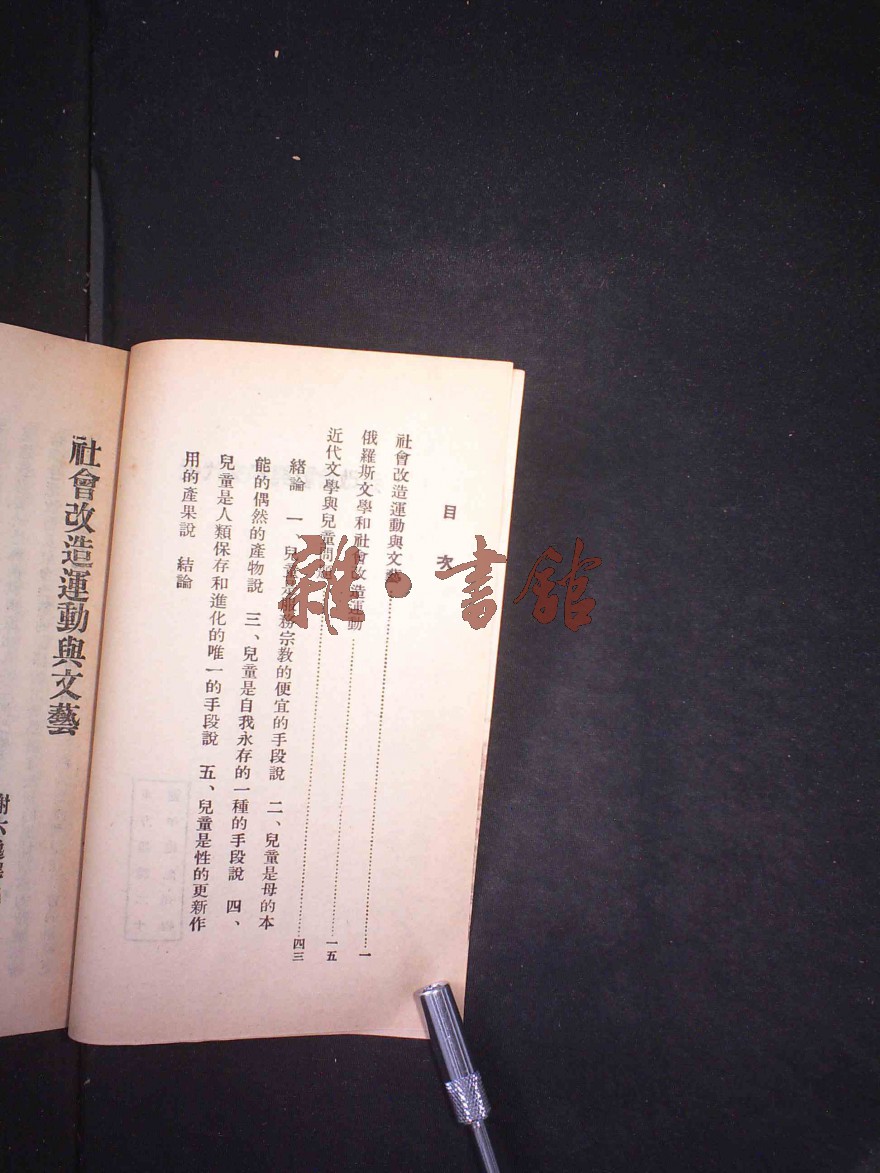 目次
社會改造運動與文藝 一
俄羅斯文學和社會改造運動 一五
近代文學與兒童問題 四三
緒論 一 兒童 服務宗教的便宜的手段說 二、兒童是母的本
能的偶然的產物說 三、兒童是自我永存的一種的手段說 四、
兒童是人類保存和進化的唯一的手段說 五、兒童是性的更新作
用的產果說 結論
社會改造運動與文藝
謝六逸
雜·書館